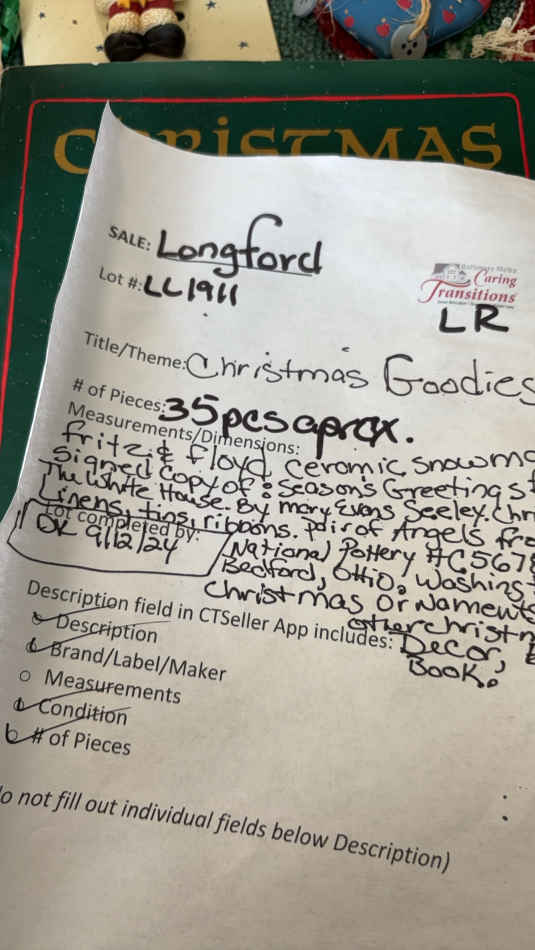 CHRISTMAS
SALE: Longford
Lot #: LL1911
Caring
Transitions
LR
Title/Theme: Christmas Goodies
# of Pieces: 35pcs aprox.
Measurements/Dimensions:
fritz & floyd ceramic snowm
Signed Copy of: Seasons Greetings f
The White House. By mary Evans Seeley. Chr
Linens, tins, ribbons. Pair of Angels fro
Lot completed by:
DK 9/12/24
National Pottery #C567
Bedford, Ohio. Washing
Christmas Ornaments
other christm
Description field in CTSeller App includes:
Decor,
Book.
Description
Brand/Label/Maker
Measurements
Condition
# of Pieces
o not fill out individual fields below Description)